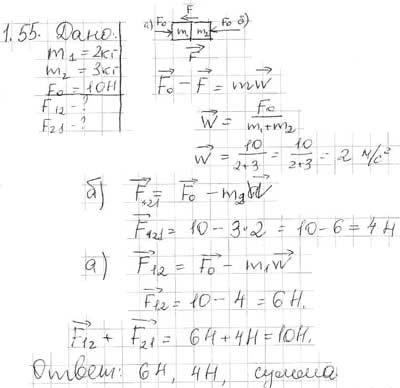 1.55. Дано:
m₁ = 2кг
m₂ = 3кг
F₀ = 10Н
F₁₂ - ?
F₂₁ - ?
F
а) F₀ m₁ m₂ F₀ б)
F
F₀ - F = mW
W = F₀ / m₁+m₂
W = 10 / 2+3 = 10 / 2+3 = 2 м/с²
б) F₂₁ = F₀ - m₂W
F₂₁ = 10 - 3·2 = 10 - 6 = 4Н
а) F₁₂ = F₀ - m₁W
F₁₂ = 10 - 4 = 6Н.
F₁₂ + F₂₁ = 6Н + 4Н = 10Н.
Ответ: 6Н, 4Н, сумма